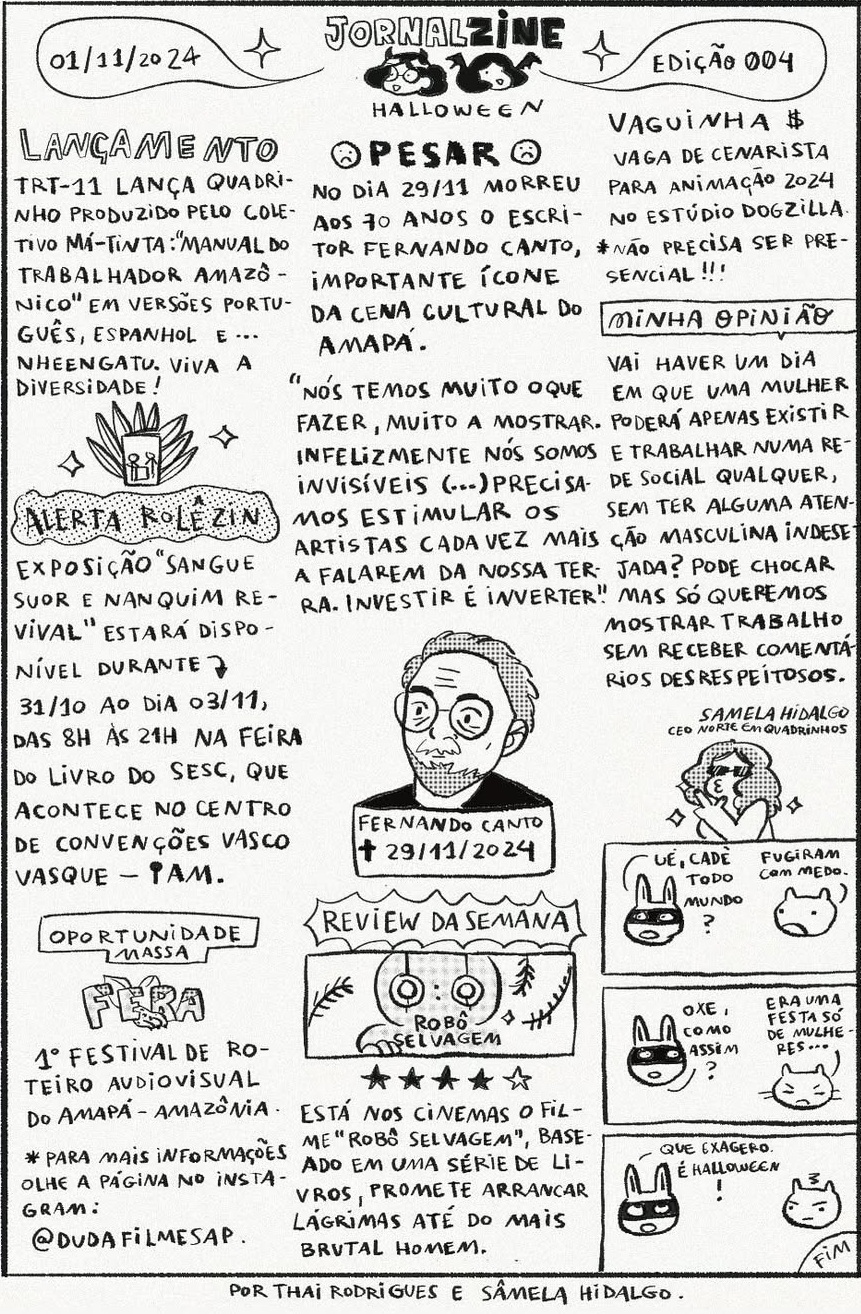 01/11/2024
JORNALZINE
HALLOWEEN
EDIÇÃO 004
LANÇAMENTO
TRT-11 LANÇA QUADRI-
NHO PRODUZIDO PELO COLE-
TIVO MÁ-TINTA:"MANUAL DO
TRABALHADOR AMAZÔ-
NICO" EM VERSÕES PORTU-
GUÊS, ESPANHOL E ...
NHEENGATU. VIVA A
DIVERSIDADE!
ALERTA ROLÊZIN
EXPOSIÇÃO "SANGUE
SUOR E NANQUIM RE-
VIVAL" ESTARÁ DISPO-
NÍVEL DURANTE
31/10 AO DIA 03/11,
DAS 8H ÀS 21H NA FEIRA
DO LIVRO DO SESC, QUE
ACONTECE NO CENTRO
DE CONVENÇÕES VASCO
VASQUE – AM.
OPORTUNIDADE
MASSA
FERA
1º FESTIVAL DE RO-
TEIRO AUDIOVISUAL
DO AMAPÁ - AMAZÔNIA.
* PARA MAIS INFORMAÇÕES
OLHE A PÁGINA NO INSTA-
GRAM:
@DUDAFILMESAP.
PESAR
NO DIA 29/11 MORREU
AOS 70 ANOS O ESCRI-
TOR FERNANDO CANTO,
IMPORTANTE ÍCONE
DA CENA CULTURAL DO
AMAPÁ.
"NÓS TEMOS MUITO O QUE
FAZER, MUITO A MOSTRAR.
INFELIZMENTE NÓS SOMOS
INVISÍVEIS (...) PRECISA-
MOS ESTIMULAR OS
ARTISTAS CADA VEZ MAIS
A FALAREM DA NOSSA TER-
RA. INVESTIR É INVERTER"
FERNANDO CANTO
✝ 29/11/2024
REVIEW DA SEMANA
ROBÔ
SELVAGEM
★★★★☆
ESTÁ NOS CINEMAS O FIL-
ME "ROBÔ SELVAGEM", BASE-
ADO EM UMA SÉRIE DE LI-
VROS, PROMETE ARRANCAR
LÁGRIMAS ATÉ DO MAIS
BRUTAL HOMEM.
VAGUINHA $
VAGA DE CENARISTA
PARA ANIMAÇÃO 2024
NO ESTÚDIO DOGZILLA.
*NÃO PRECISA SER PRE-
SENCIAL!!!
MINHA OPINIÃO
VAI HAVER UM DIA
EM QUE UMA MULHER
PODERÁ APENAS EXISTIR
E TRABALHAR NUMA RE-
DE SOCIAL QUALQUER,
SEM TER ALGUMA ATEN-
ÇÃO MASCULINA INDESE-
JADA? PODE CHOCAR
MAS SÓ QUEREMOS
MOSTRAR TRABALHO
SEM RECEBER COMENTÁ-
RIOS DESRESPEITOSOS.
SAMELA HIDALGO
CEO NORTE EM QUADRINHOS
UÉ, CADÊ
TODO
MUNDO
?
FUGIRAM
COM MEDO.
OXE,
COMO
ASSIM
?
ERA UMA
FESTA SÓ
DE MULHE-
RES...
QUE EXAGERO.
É HALLOWEEN
!
FIM
POR THAI RODRIGUES E SÂMELA HIDALGO.